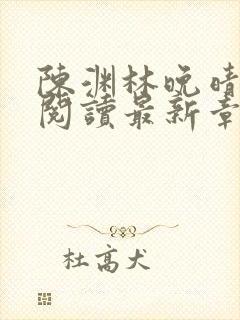 陳渊林晚晴
閱讀最新章
杜高犬